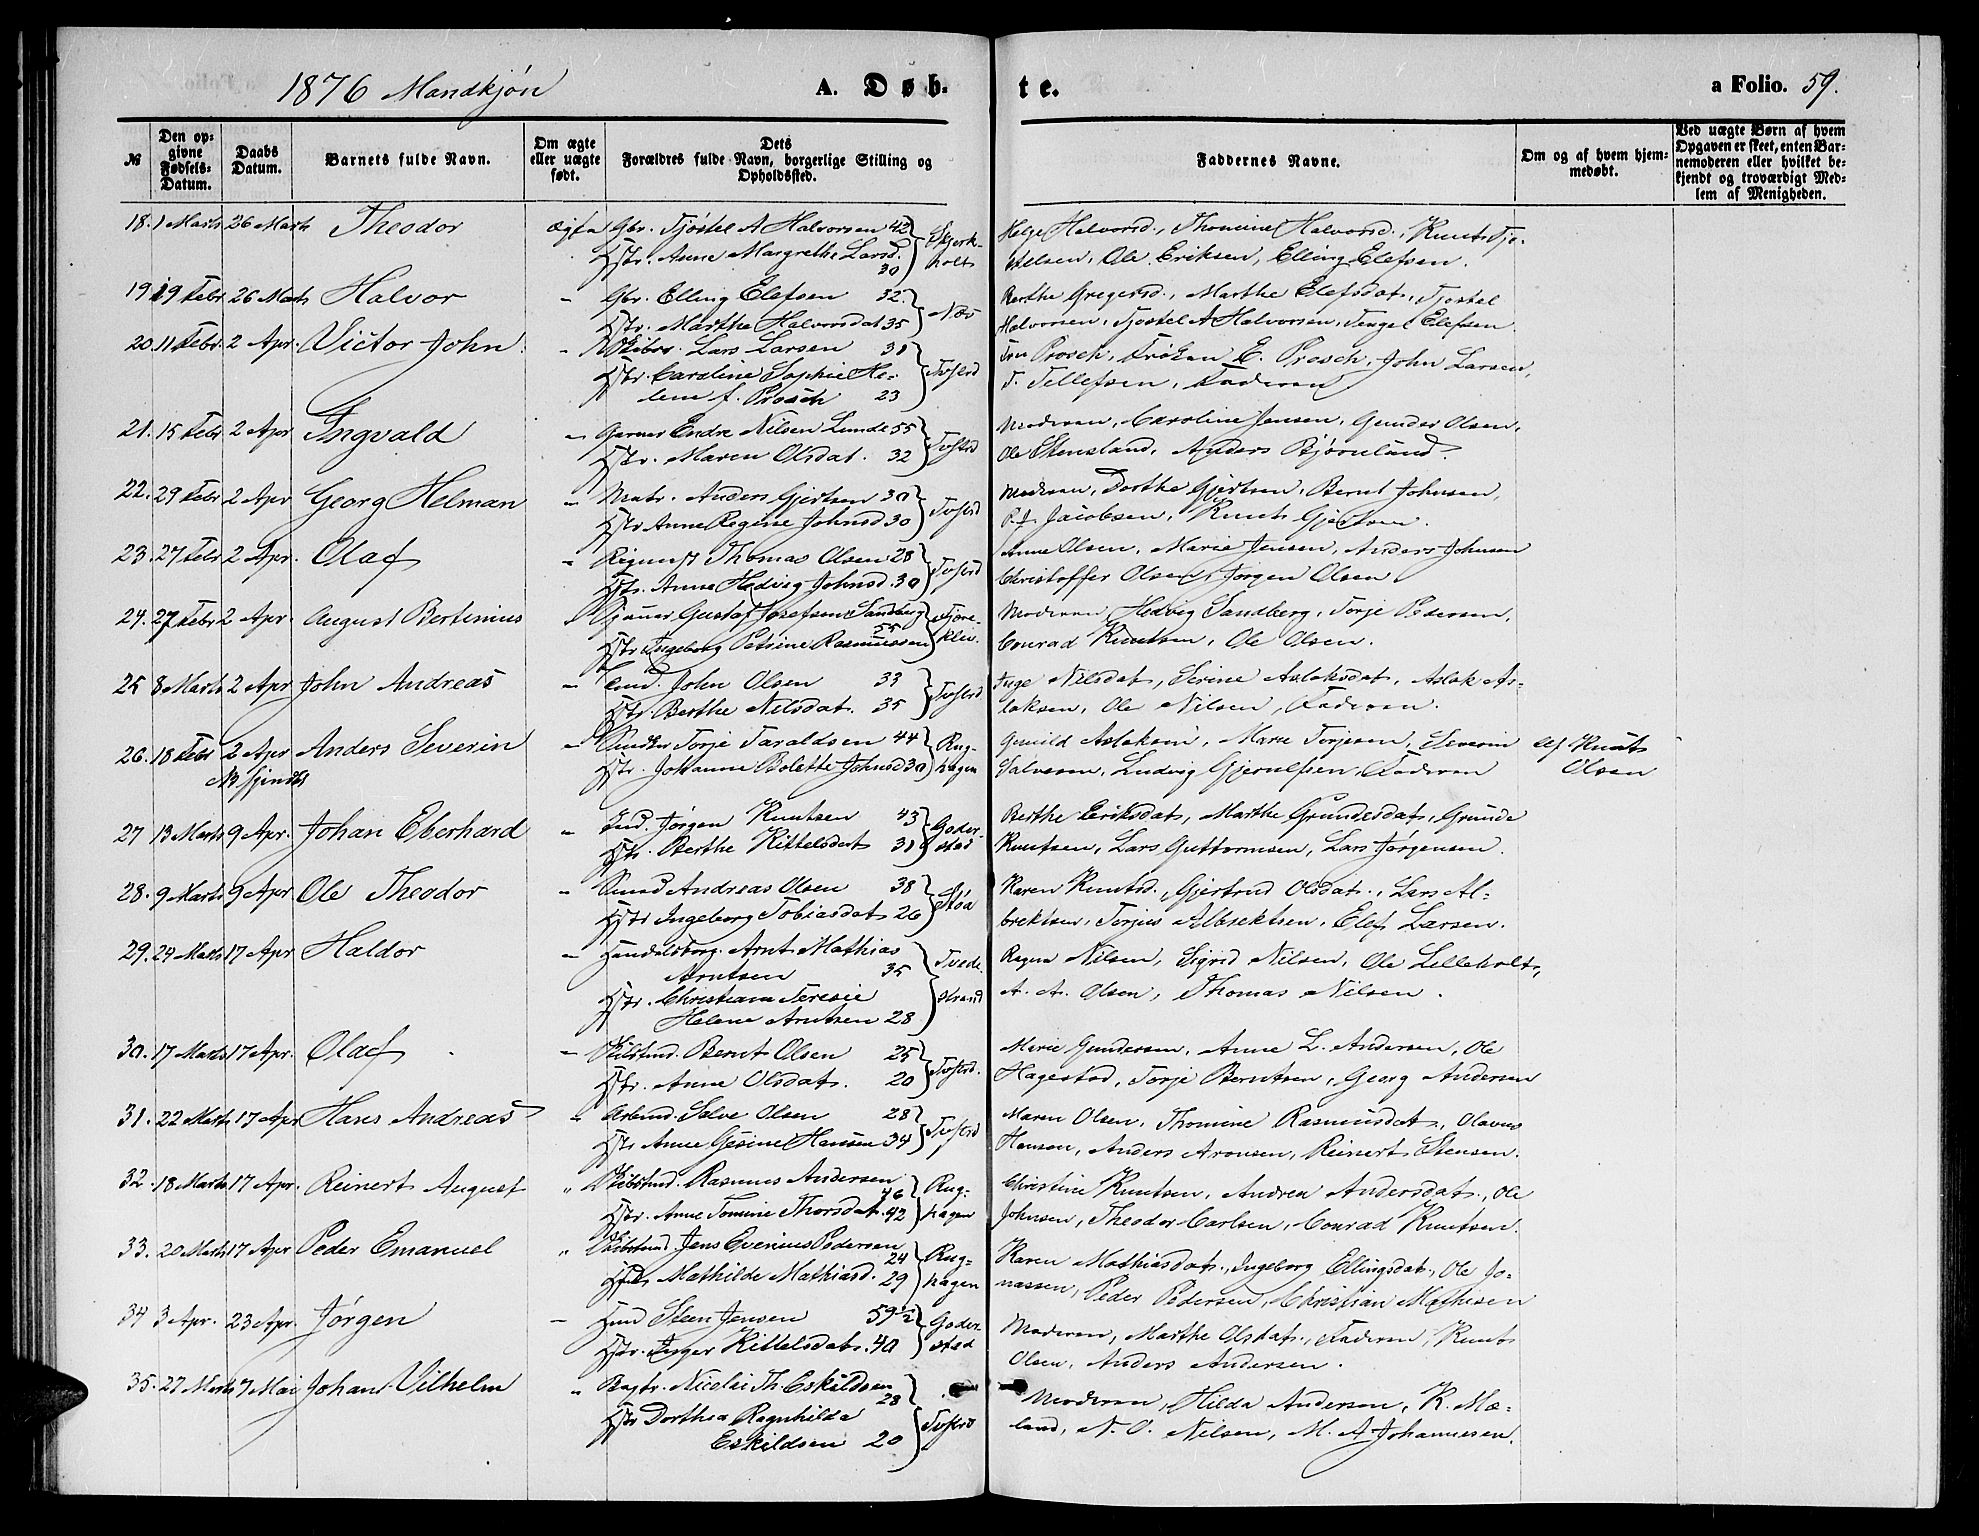 1876 Mandkjøn
A. Døb-
te.
a Folio. 59.
№
Den op-
givne
Fødsels-
Datum.
Daabs
Datum.
Barnets fulde Navn.
Om ægte
eller uægte
født.
Dets
Forældres fulde Navn, borgerlige Stilling og
Opholdssted.
Faddernes Navne.
Om og af hvem hjem-
medøbt.
Ved uægte Børn af hvem
Opgaven er skeet, enten Bar-
nemoderen eller hvilket be-
kjendt og troværdigt Med-
lem af Menigheden.
18. 1 Marts 26 Marts Theodor ægte Gbr. Tjøstel A Halvorsen 42 Skjerk- Helje Halvorsd., Thomine Halvorsd., Knut Tjø-
Hstr. Anne Margrethe Larsd. 30 holt stelsen, Ole Eriksen, Elling Elefsen.
19. 19 Febr 26 Marts Halvor " Gbr. Elling Elefsen 32. Næs Berthe Gregersd., Marthe Elefsdat., Tjøstel
Hstr. Marthe Halvorsdat 35 Halvorsen, Tjøstel A Halvorsen, Tengel Elefsen.
20. 11 Febr. 2 Apr. Victor John " Skibsf. Lars Larsen 31 Tvstrd Fru Prosch, Frøken E. Prosch, John Larsen,
Hstr. Caroline Sophie He-
lene f. Prosch 23 T. Tellefsen, Faderen
21. 15 Febr 2 Apr Ingvald " Garver Endre Nilsen Lunde 55 Tvstrd Moderen, Caroline Jensen, Gunder Olsen,
Hstr. Maren Olsdat. 32 Ole Stensland, Anders Bjørnland.
22. 29 Febr 2 Apr Georg Helman " Matr. Anders Gjertsen 30 Tvstrd Moderen, Dorthe Gjertsen, Bernt Johnsen,
Hstr Anne Regine Johnsd 30 P. J. Jacobsen, Knut Gjertsen.
23. 27 Febr 2 Apr. Olaf " Thomas Olsen 28 Tvstrd Anne Olsen, Marie Jensen, Anders Johnsen
Hstr. Anne Hedvig Johnsd. 30 Christoffer Olsen, Jørgen Olsen
24. 27 Febr 2 Apr. August Bertinius Gustaf Josefsen Sandberg 55 Moderen, Hedvig Sandberg, Torje Pedersen,
Hstr Ingeborg Petrine Rasmussen Conrad Knutsen, Ole Olsen.
25 8 Marts 2 Apr John Andreas " John Olsen 33 Tvstrd Inge Nilsdat, Serine Aslaksdat, Aslak As-
Hstr. Berthe Nilsdat. 35 laksen, Ole Nilsen, Faderen.
26. 18 Febr 2 Apr Anders Severin " Torje Taraldsen 44 Rug- Gunild Aslaksen, Marie Torjesen, Severin af Knut
Hstr. Johanne Bolette Johnsd 30 hagen Salvesen, Ludvig Gjerulfsen, Faderen Olsen
27 13 Marts 9 Apr. Johan Eberhard " Ind. Jørgen Knutsen 43 Goder- Berthe Eriksdat, Marthe Grundesdat, Grunde
Hstr. Berthe Kittelsdat 31 stad Knutsen, Lars Guttormsen, Lars Jørgensen.
28. 9 Marts 9 Apr Ole Theodor " Smed Andreas Olsen 38 Støa Karen Knutsd., Gjertrud Olsdat., Lars Al-
Hstr Ingeborg Tobiasdat 26 brektsen, Torjus Albrektsen, Elef Larsen.
29. 24 Marts 17 Apr Haldor " Handelsborg. Arnt Mathias Tvede- Ragna Nilsen, Sigrid Nilsen, Ole Lilleholt,
Arntsen 35
Hstr. Christiane Teresie strand A. A. Olsen, Thomas Nilsen.
Helene Arntsen 28
30. 17 Marts 17 Apr. Olaf " Skibstmd. Bernt Olsen 25 Tvstrd. Marie Gundersen, Anne L. Andersen, Ole
Hstr. Anne Olsdat. 20 Hagestad, Torje Berntsen, Georg Andersen
31. 22 Marts 17 Apr Hans Andreas " Arbmd. Salve Olsen 28 Tvstrd Maren Olsen, Thomine Rasmusdat., Olavus
Hstr Anne Gesine Hansen 34 Hansen, Anders Aronsen, Reinert Stensen.
32. 18 Marts 17 Apr. Reinert August " Skibstmd. Rasmus Andersen 46 Rug- Christine Knutsen, Andrea Andersdat., Ole
Hstr. Anne Tomine Thorsdat. 42 hagen Johnsen, Theodor Carlsen, Conrad Knutsen.
33. 20 Marts 17 Apr Peder Emanuel " Skibstmd Jens Evenius Pedersen 24 Rug- Karen Mathiasdat., Ingeborg Ellingsdat., Ole Jo-
Hstr Mathilde Mathiasd. 29 hagen nassen, Peder Pedersen, Christian Mathisen
34 3 Apr. 23 Apr. Jørgen " Steen Jensen 59½ Goder- Moderen, Marthe Olsdat., Faderen, Knut
Hstr. Inger Kittelsdat. 40 stad Olsen, Anders Andersen.
35. 27 Marts 7 Mai Johan Vilhelm " Bogtr. Nicolai Th. Eskildsen 28 Tvstrd Moderen, Hilda Andersen, K. Mæ-
Hstr Dorthea Ragnhilda land, N. O. Nilsen, M. A Johannesen.
Eskildsen 20